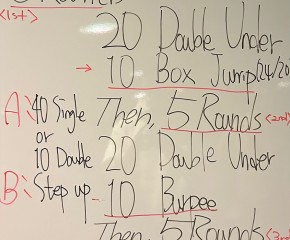 <1st>
20 Double Under
→ 10 Box Jump (24/20
A: 40 Single Then, 5 Rounds <2nd>
or
10 Double 20 Double Under
B: Step up 10 Burpee
Then, 5 Rounds <3rd